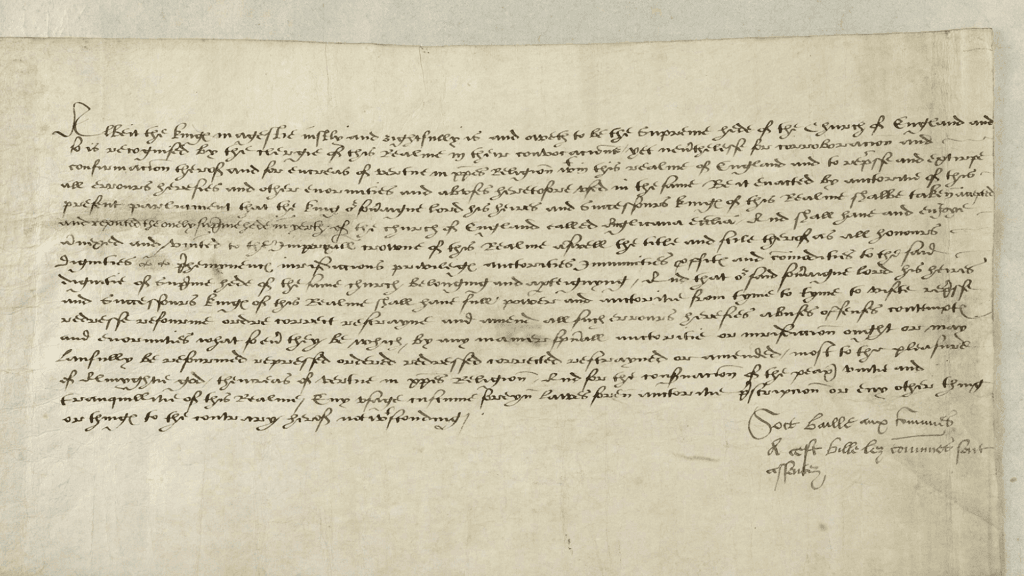 Albeit the Kinges magestie iustly and rightfully is and oweth to be the Supreme hede of the Church of England and
so is recognised by the clergie of this Realme in their convocacions yet nevertheles for corroboracion and
confirmacion therof and for encreas of vertue in xpes Religion wtin this realme of England and to represse and extirpe
all errours heresies and other enormities and abuses heretofore used in the same Be it enacted by auctorite of this
present parliament that the king or soveraigne lord his heires and Successours kinges of this Realme shalbe taken accepted
and reputed the onely supreme hede in erthe of the church of England called Anglicana ecclesia And shall have and enjoye
annexed and united to the Imperiall crowne of this Realme aswell the title and stile therof as all honours
Dignities preheminences iurisdiccions privileges auctorities Immunities profites and comodities to the said
dignitie of supreme hede of the same church belonging and apperteignyng / And that or said soveraigne lord his heires
and Successours kinges of this Realme shall have full power and auctorite from tyme to tyme to visite represse
redresse refourme ordre correct restrayne and amend all such errours heresies abuses offenses contemptes
and enormities what so ev they be which by any maner spuall auctoritie or iurisdiccion ought or may
laufully be refourmed repressed ordered redressed corrected restrayned or amended / most to the pleasure
of Almyghtie god thencreas of vertue in xpes Religion And for the conservacion of the peax unitie and
tranquillitie of this Realme / Any usage custume foreyn lawes foren auctoritie prescripcion or eny other thing
or thinges to the contrary herof notwtstonding /
Soit baille aux comunes
A cest bille lez comunes sont
assentez